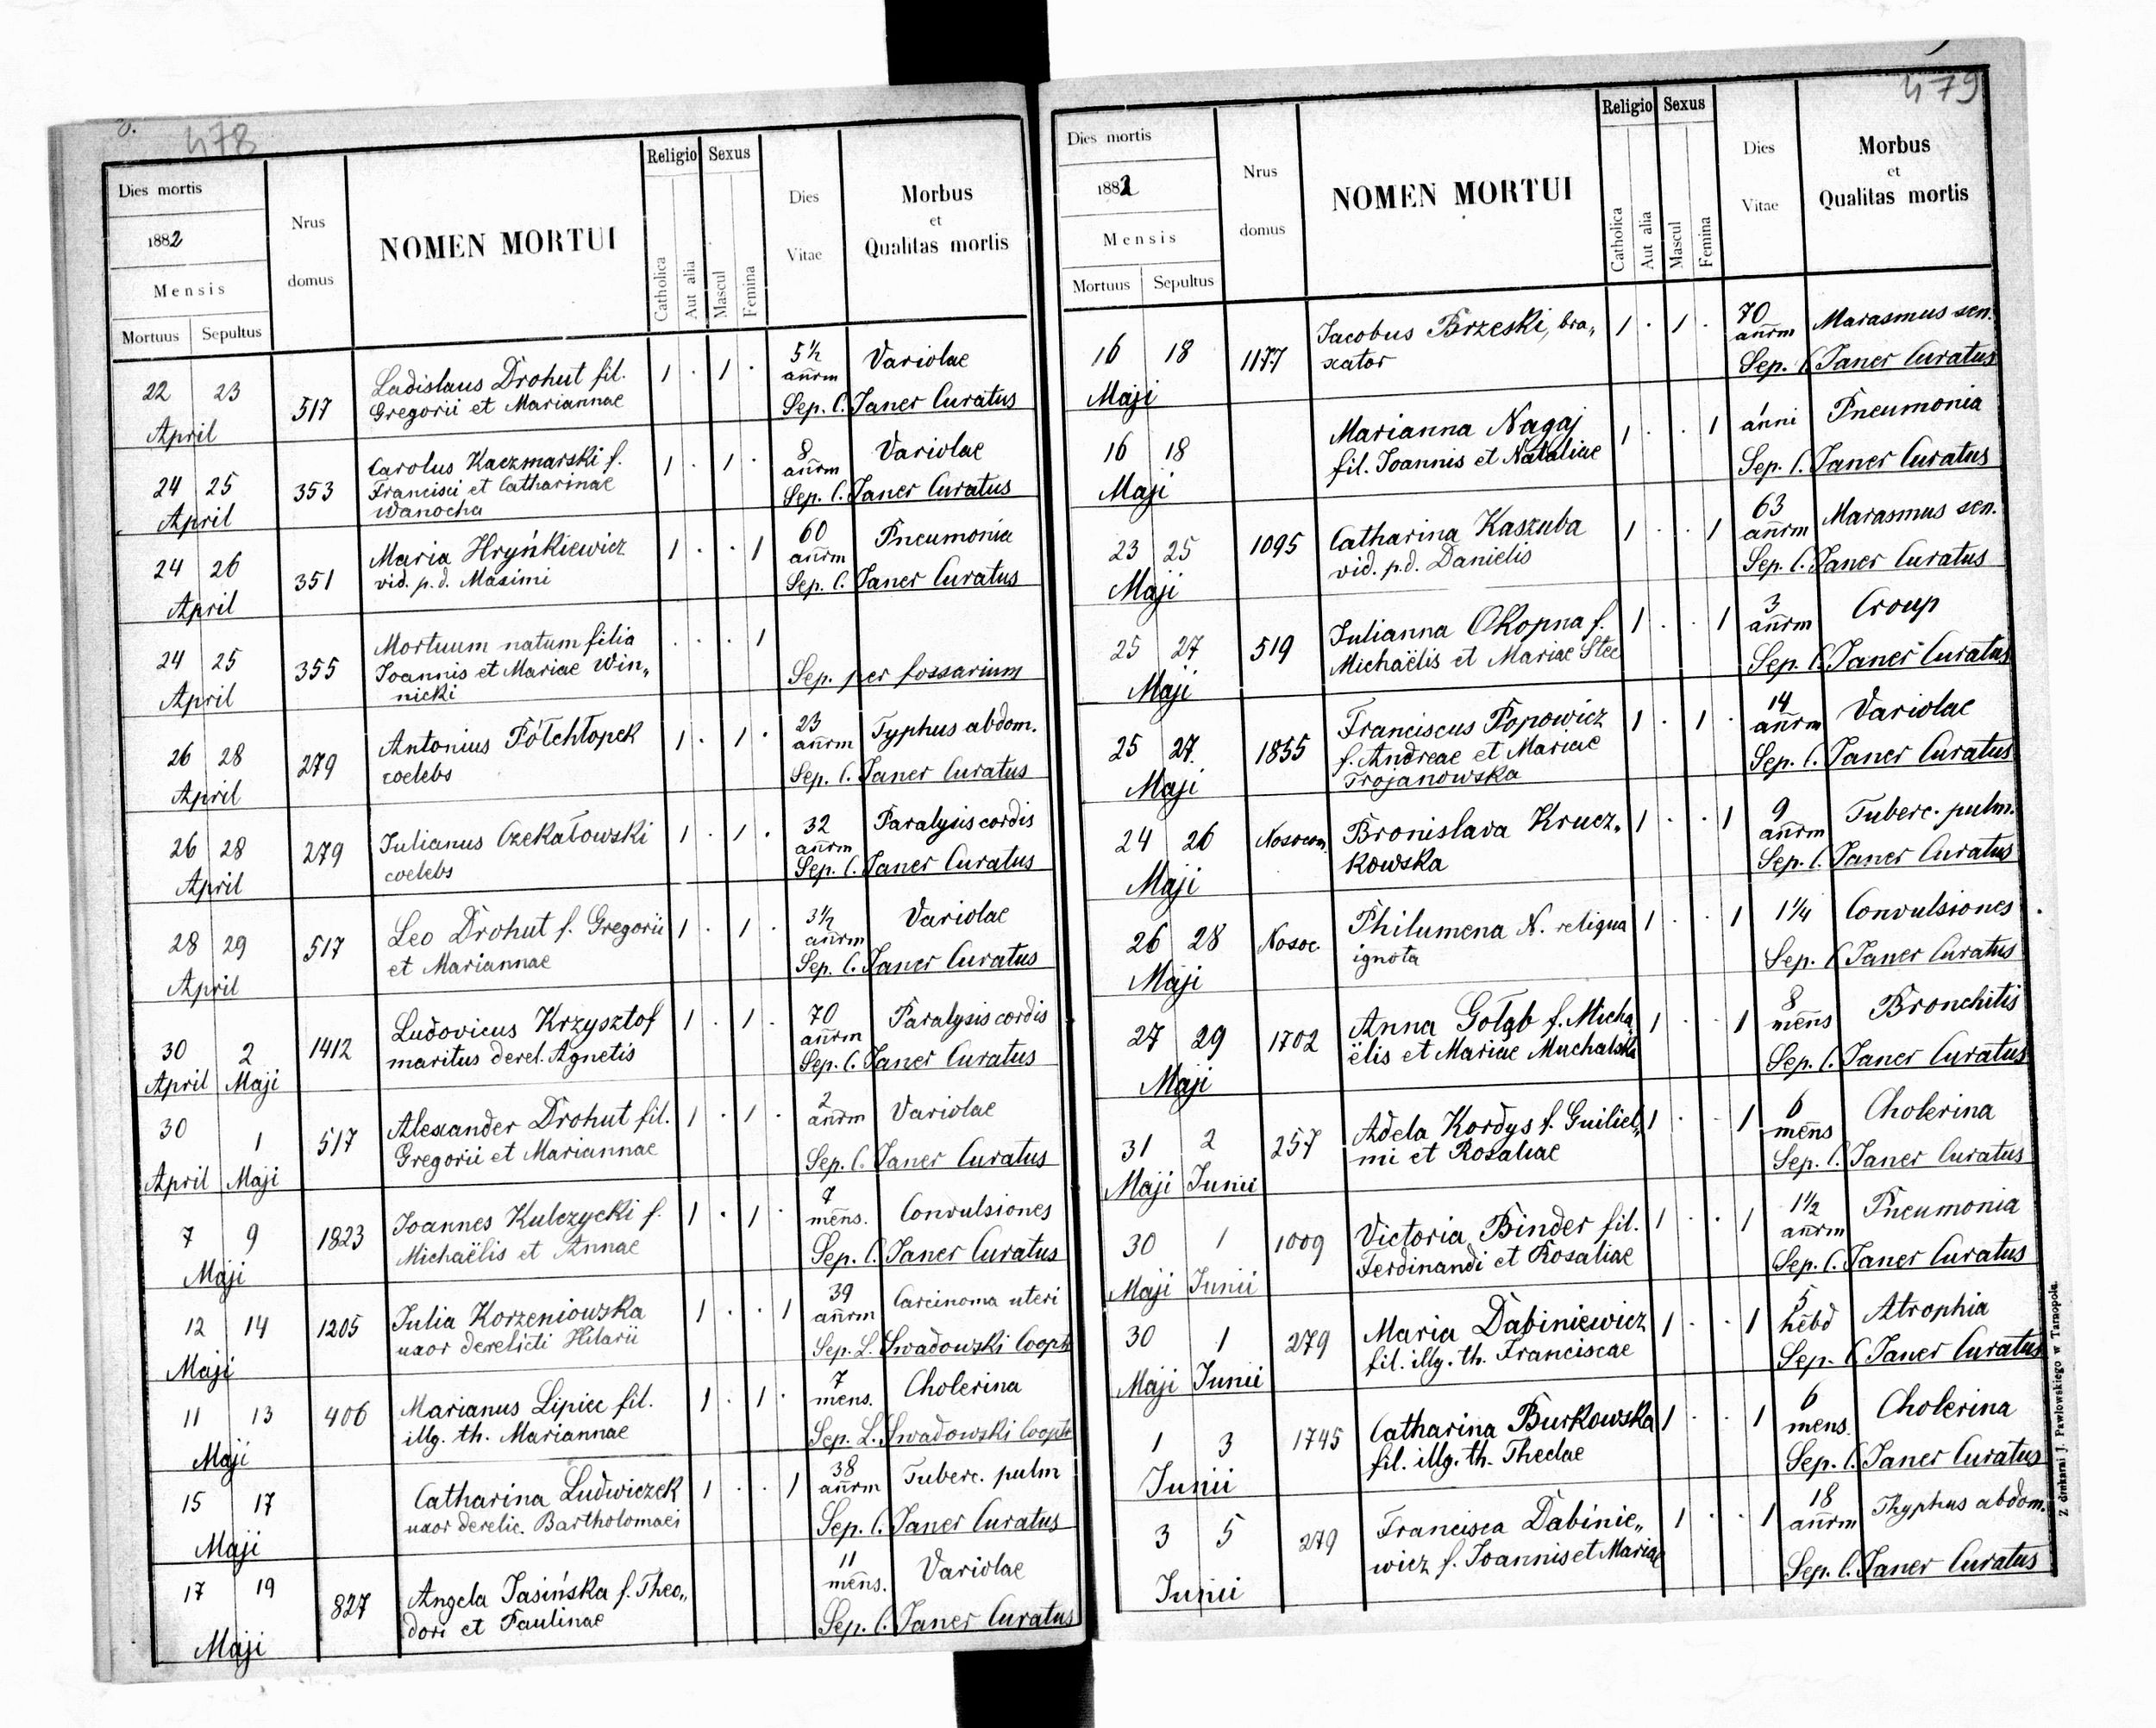 478
Dies mortis
1882
Mensis
Mortuus Sepultus
Nrus domus
NOMEN MORTUI
Religio Sexus
Catholica Aut alia Mascul Femina
Dies Vitae
Morbus
et
Qualitas mortis
22 23 517 Ladislaus Drohut fil. 1 . 1 . 5½ Variolae
April Gregorii et Mariannae annrm Sep. C. Janer Curatus
24 25 353 Carolus Kaczmarski f. 1 . 1 . 8 Variolae
April Francisci et Catharinae annrm Sep. C. Janer Curatus
Wanocha
24 26 351 Maria Hryńkiewicz 1 . . 1 60 Pneumonia
April vid. p. d. Maximi annrm Sep. C. Janer Curatus
24 25 355 Mortuum natum filia . . . 1
April Joannis et Mariae Win„ Sep. per fossarium
nicki
26 28 279 Antonius Półchłopek 1 . 1 . 23 Typhus abdom.
April coelebs annrm Sep. C. Janer Curatus
26 28 279 Julianus Czekałowski 1 . 1 . 32 Paralysis cordis
April coelebs annrm Sep. C. Janer Curatus
28 29 517 Leo Drohut f. Gregorii 1 . 1 . 3½ Variolae
April et Mariannae annrm Sep. C. Janer Curatus
30 2 1412 Ludovicus Krzysztof 1 . 1 . 70 Paralysis cordis
April Maji maritus derel. Agnetis annrm Sep. C. Janer Curatus
30 1 517 Alexander Drohut fil. 1 . 1 . 2 Variolae
April Maji Gregorii et Mariannae annrm Sep. C. Janer Curatus
7 9 1823 Joannes Kulczycki f. 1 . 1 . 7 Convulsiones
Maji Michaëlis et Annae mens. Sep. C. Janer Curatus
12 14 1205 Julia Korzeniowska 1 . . 1 39 Carcinoma uteri
Maji uxor derelicti Hilarii annrm Sep. L. Swadowski Coopt
11 13 406 Marianus Lipiec fil. 1 . 1 . 7 Cholerina
Maji illg. th. Mariannae mens. Sep. L. Swadowski Coopt
15 17 Catharina Ludwiczek 1 . . 1 38 Tuberc. pulm
Maji uxor derelic. Bartholomaei annrm Sep. C. Janer Curatus
17 19 827 Angela Jasińska f. Theo„ 11 Variolae
Maji dori et Paulinae mens. Sep. C. Janer Curatus
479
Dies mortis
1882
Mensis
Mortuus Sepultus
Nrus domus
NOMEN MORTUI
Religio Sexus
Catholica Aut alia Mascul Femina
Dies Vitae
Morbus
et
Qualitas mortis
16 18 1177 Jacobus Brzeski, bra„ 1 . 1 . 70 Marasmus sen.
Maji xator annrm Sep. C. Janer Curatus
16 18 Marianna Nagaj 1 . . 1 1 anni Pneumonia
Maji fil. Joannis et Nataliae Sep. C. Janer Curatus
23 25 1095 Catharina Kaszuba 1 . . 1 63 Marasmus sen.
Maji vid. p. d. Danielis annrm Sep. C. Janer Curatus
25 27 519 Julianna Okopna f. 1 . . 1 3 Croup
Maji Michaëlis et Mariae Stec annrm Sep. C. Janer Curatus
25 27. 1855 Franciscus Popowicz 1 . 1 . 14 Variolae
Maji f. Andreae et Mariae annrm Sep. C. Janer Curatus
Trojanowska
24 26 Nosocom. Bronislava Krucz„ 1 . . 1 9 Tuberc. pulm.
Maji kowska annrm Sep. C. Janer Curatus
26 28 Nosoc. Philumena N. reliqua 1 . . 1 1¼ Convulsiones
Maji ignota Sep. C. Janer Curatus
27 29 1702 Anna Gołąb f. Micha„ 1 . . 1 8 Bronchitis
Maji ëlis et Mariae Muchalska mens Sep. C. Janer Curatus
31 2 257 Adela Kordys f. Guiliel„ 1 . . 1 6 Cholerina
Maji Junii mi et Rosaliae mens Sep. C. Janer Curatus
30 1 1009 Victoria Binder fil. 1 . . 1 1½ Pneumonia
Maji Junii Ferdinandi et Rosaliae annrm Sep. C. Janer Curatus
30 1 279 Maria Dabiniewicz 1 . . 1 5 Atrophia
Maji Junii fil. illg. th. Franciscae hebd Sep. C. Janer Curatus
1 3 1745 Catharina Burkowska 1 . . 1 6 Cholerina
Junii fil. illg. th. Theclae mens. Sep. C. Janer Curatus
3 5 279 Francisca Dabinie„ 1 . . 1 18 Thyphus abdom.
Junii wicz f. Joannis et Mariae annrm Sep. C. Janer Curatus
Z drukarni J. Pawłowskiego w Tarnopolu.